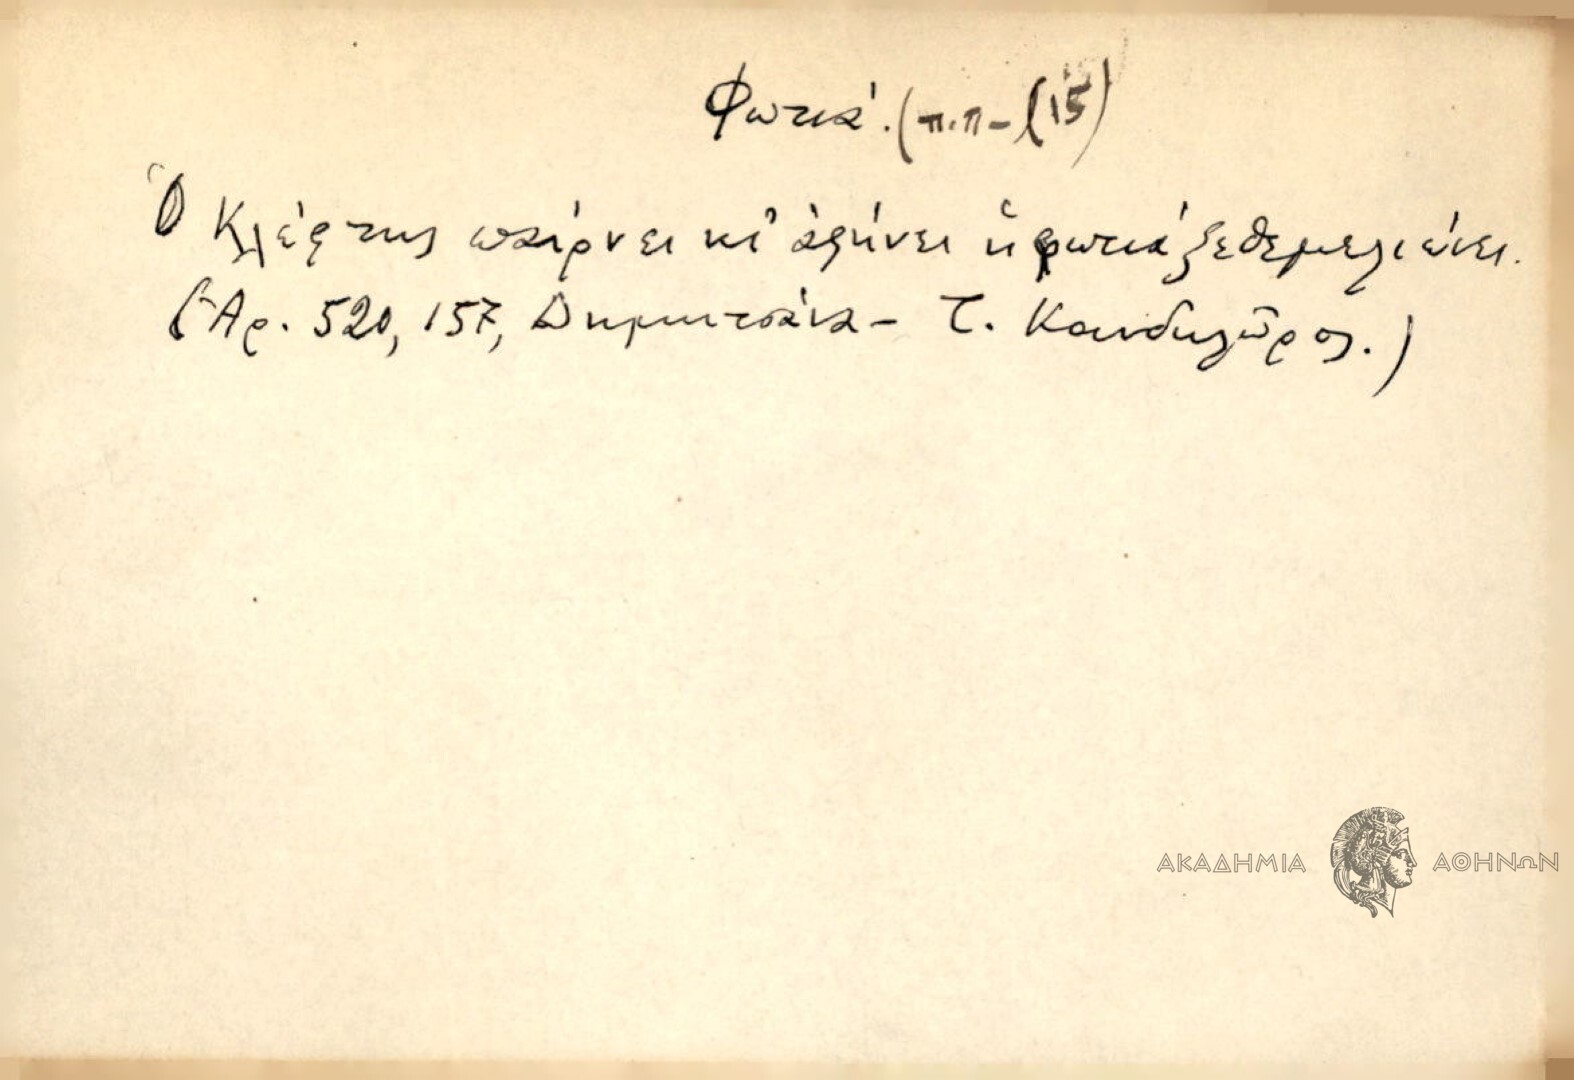 Φωτιά. (π.π- (15)
Ὁ Κλέφτης παίρνει κι' ἀφήνει ἡ φωτιά ξεθεμελιώνει.
(Ἀρ. 520, 157, Δημητσάνα - Τ. Κανδηλῶρος.)
ΑΚΑΔΗΜΙΑ ΑΘΗΝΩΝ